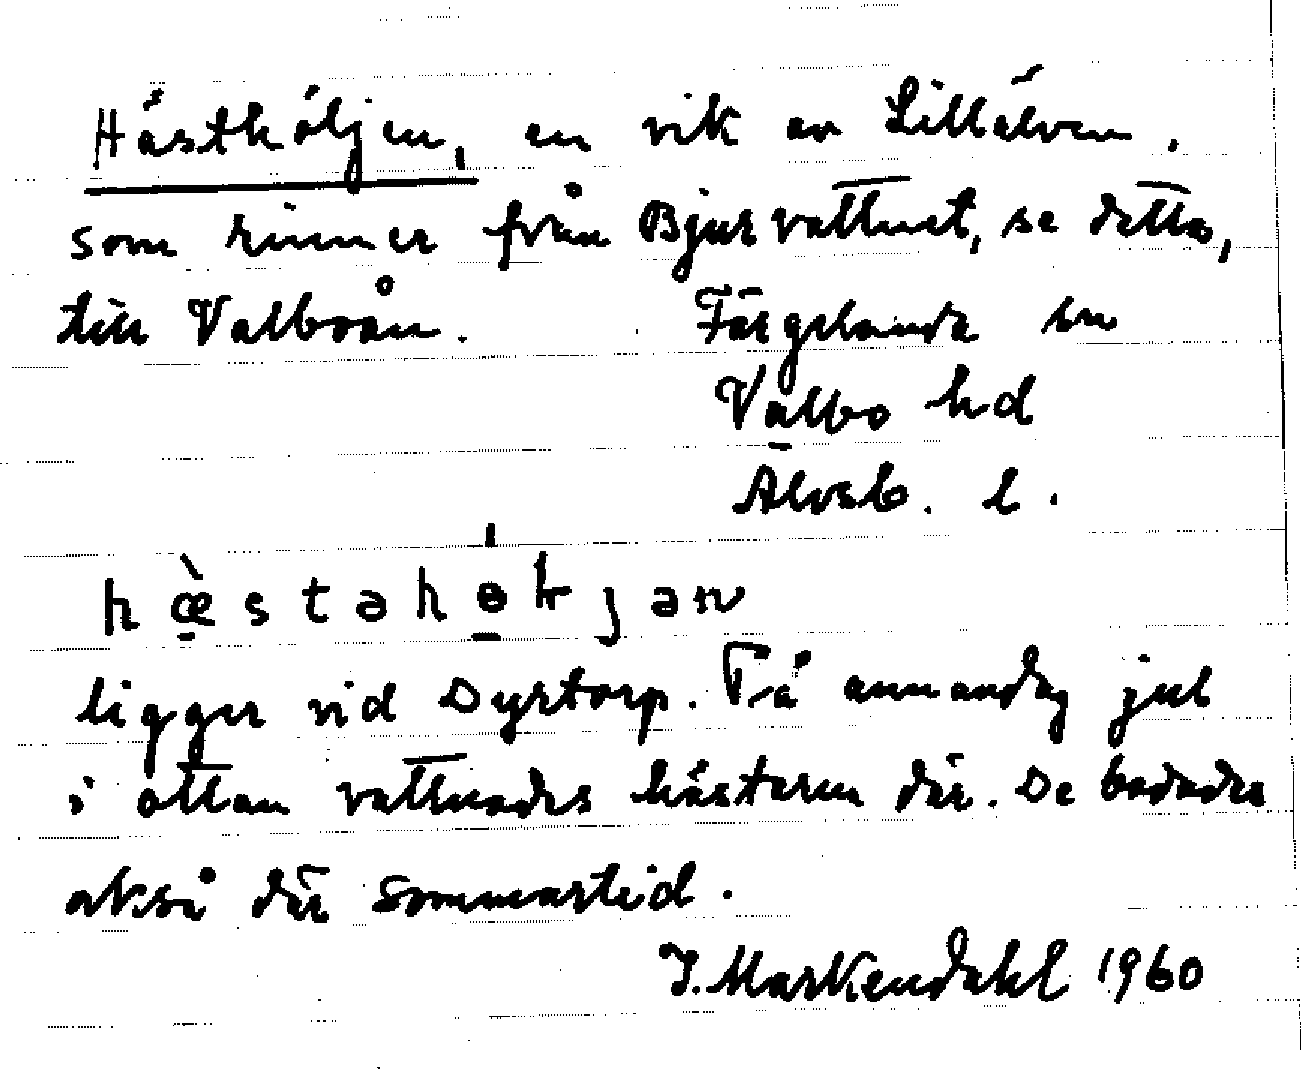 Hästhöljen, en vik av Lillälven,
som rinner från Bjurvattnet, se detta,
till Valboån. Färgelanda sn
Valbo hd
Älvsb. l.
hæ̀stəhɵļjən
ligger vid Dyrtorp. På annandag jul
i ottan vattnades hästarna där. De badades
också där sommartid.
J. Markendahl 1960